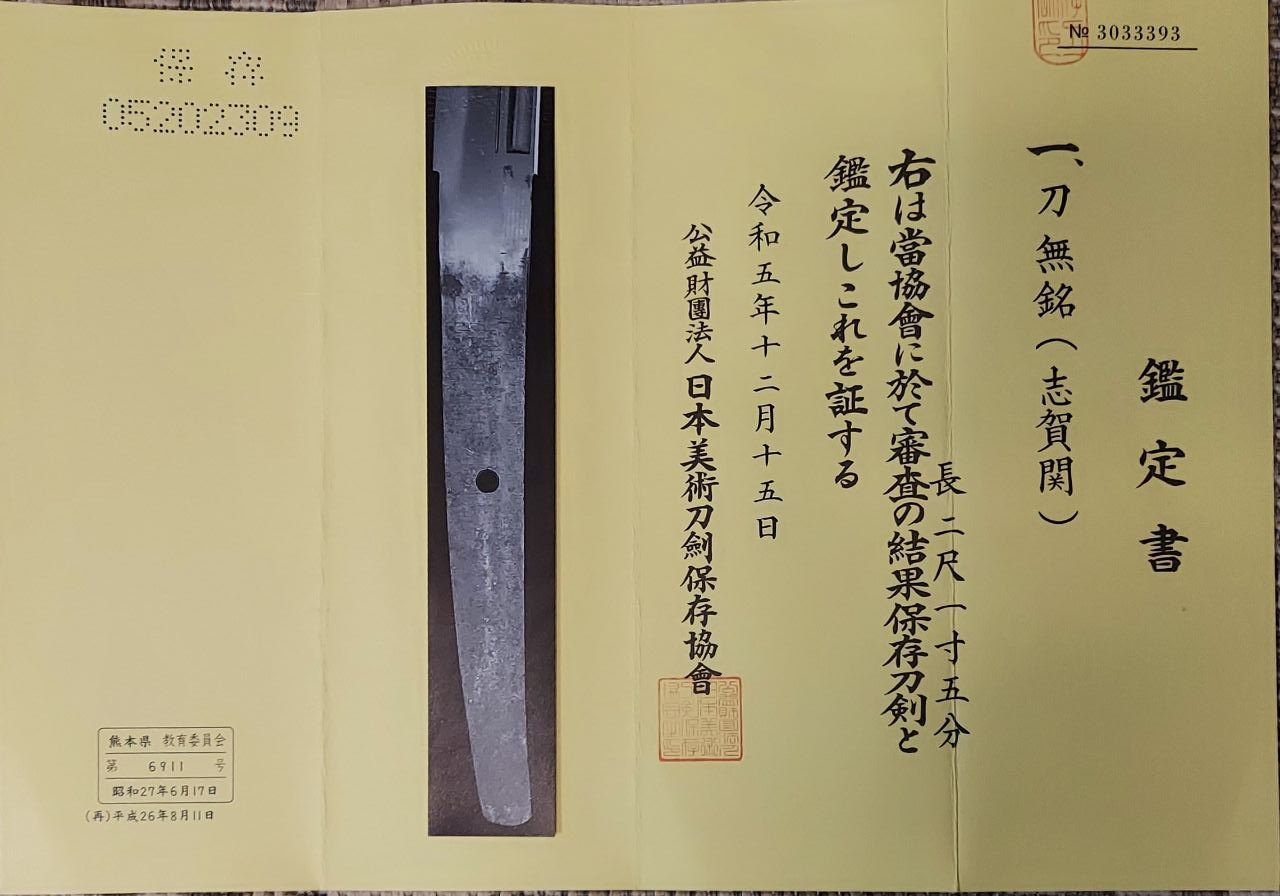 № 3033393
鑑定書
一、刀 無銘(志賀関)
長 二尺一寸五分
右は當協會に於て審査の結果保存刀剣と
鑑定しこれを証する
令和五年十二月十五日
公益財團法人 日本美術刀劍保存協會
保存
05202309
熊本県 教育委員会
第 6911 号
昭和27年6月17日
(再)平成26年8月11日